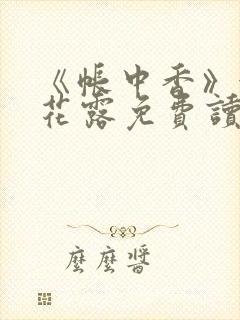 《帳中香》
花露免費讀
麼麼醬